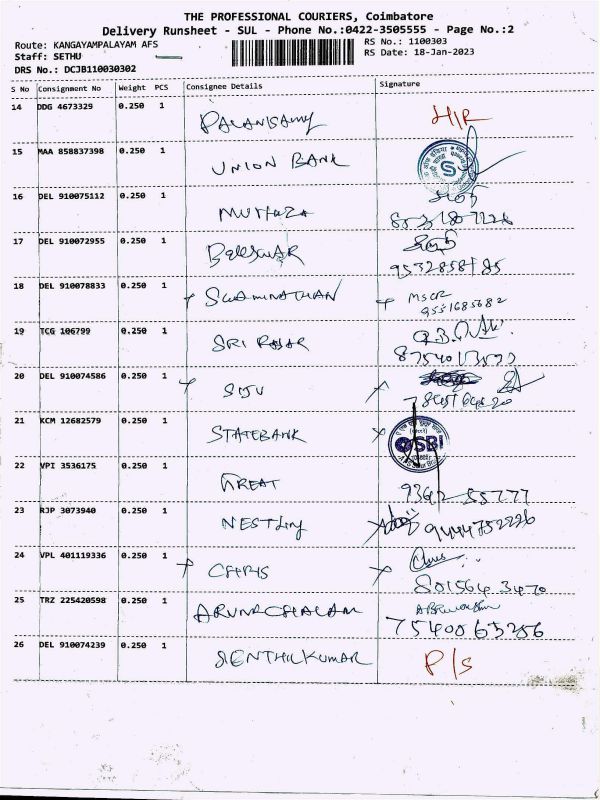 THE PROFESSIONAL COURIERS, Coimbatore
Delivery Runsheet - SUL - Phone No.:0422-3505555 - Page No.:2
Route: KANGAYAMPALAYAM AFS
RS No.: 1100303
Staff: SETHU
RS Date: 18-Jan-2023
DRS No.: DCJB110030302
S No Consignment No Weight PCS Consignee Details Signature
14 DDG 4673329 0.250 1 PALANISAMY H/R
15 MAA 858837398 0.250 1 UNION BANK
16 DEL 910075112 0.250 1 MUTHAZA
17 DEL 910072955 0.250 1 BALESWAR
18 DEL 910078833 0.250 1 SWAMINATHAN
9551685682
19 TCG 106799 0.250 1 SRI RAJAR
20 DEL 910074586 0.250 1 SIJU
21 KCM 12682579 0.250 1 STATEBANK SBI
22 VPI 3536175 0.250 1 GREAT
23 RJP 3073940 0.250 1 NESTLING 9444752226
24 VPL 401119336 0.250 1 CHRIS
801564 3470
25 TRZ 225420598 0.250 1 ARUNACHALAM
7540065256
26 DEL 910074239 0.250 1 SENTHILKUMAR P/S